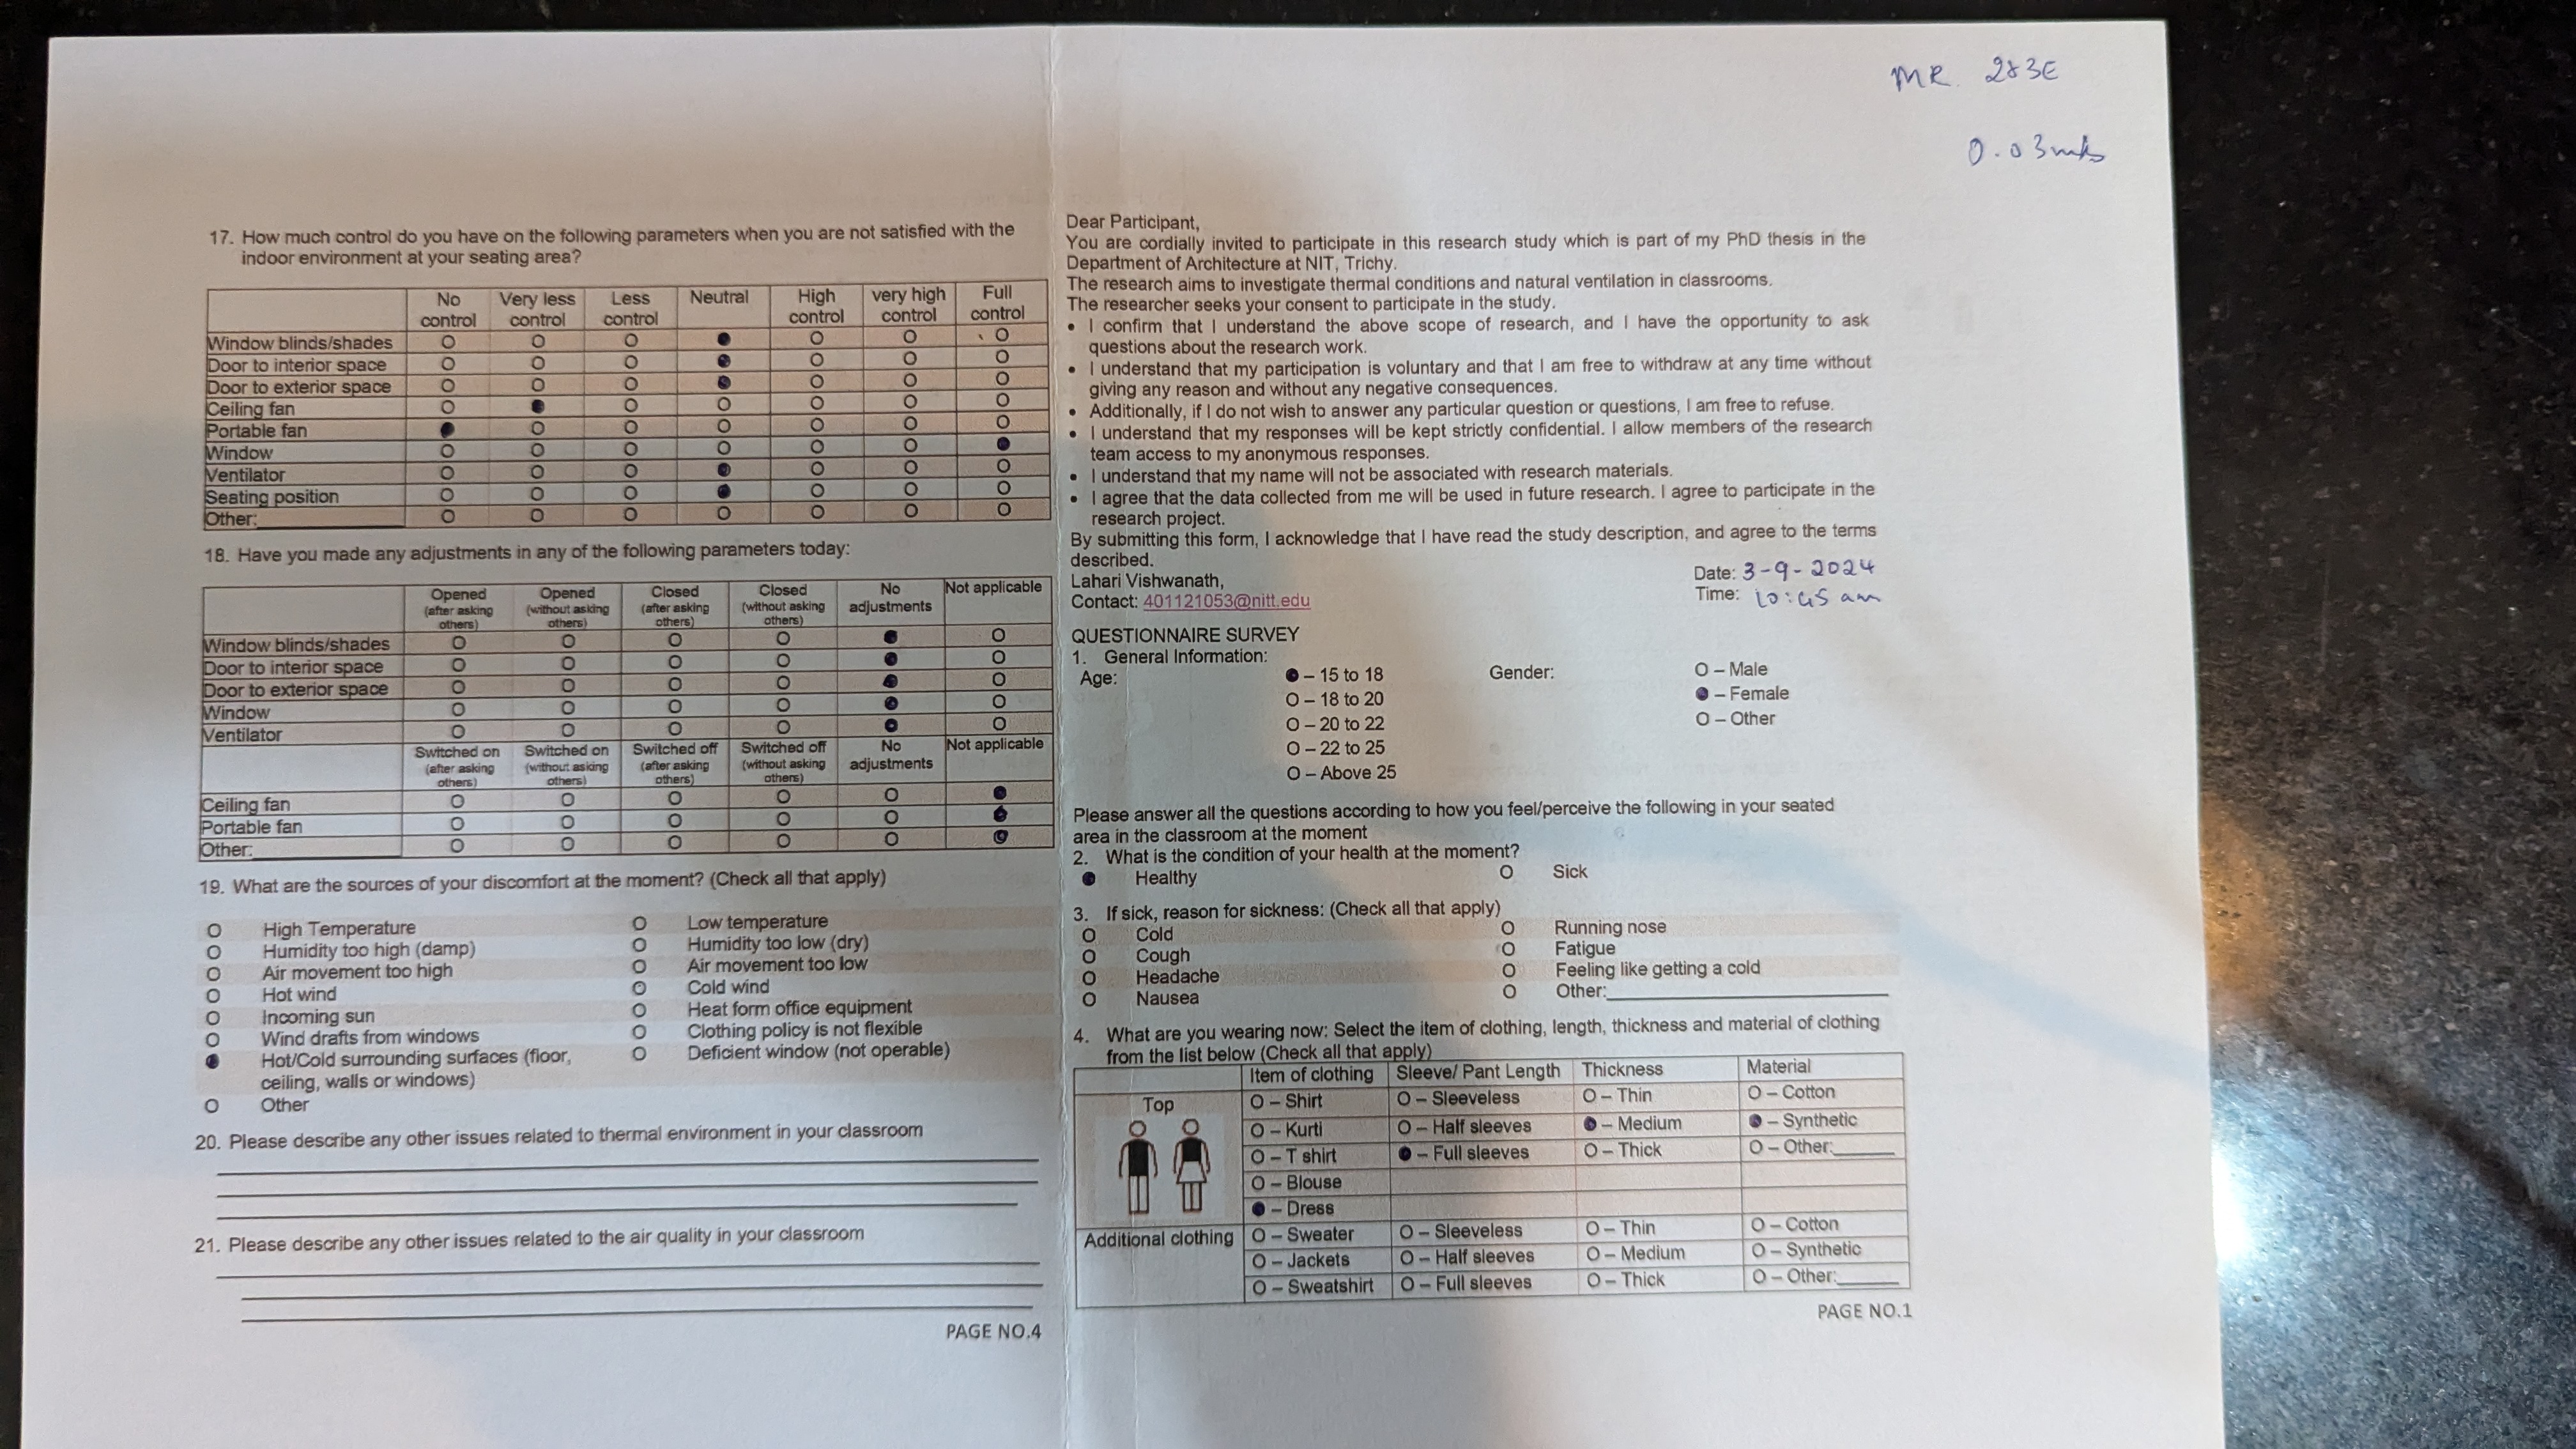 MR 283E
0.03 m/s
17. How much control do you have on the following parameters when you are not satisfied with the
indoor environment at your seating area?
No control Very less control Less control Neutral High control very high control Full control
Window blinds/shades O O O ● O O O
Door to interior space O O O ● O O O
Door to exterior space O O O ● O O O
Ceiling fan O ● O O O O O
Portable fan ● O O O O O O
Window O O O O O O ●
Ventilator O O O ● O O O
Seating position O O O ● O O O
Other: O O O O O O O
18. Have you made any adjustments in any of the following parameters today:
Opened (after asking others) Opened (without asking others) Closed (after asking others) Closed (without asking others) No adjustments Not applicable
Window blinds/shades O O O O ● O
Door to interior space O O O O ● O
Door to exterior space O O O O ● O
Window O O O O ● O
Ventilator O O O O ● O
Switched on (after asking others) Switched on (without asking others) Switched off (after asking others) Switched off (without asking others) No adjustments Not applicable
Ceiling fan O O O O O ●
Portable fan O O O O O ●
Other: O O O O O ●
19. What are the sources of your discomfort at the moment? (Check all that apply)
O High Temperature O Low temperature
O Humidity too high (damp) O Humidity too low (dry)
O Air movement too high O Air movement too low
O Hot wind O Cold wind
O Incoming sun O Heat form office equipment
O Wind drafts from windows O Clothing policy is not flexible
● Hot/Cold surrounding surfaces (floor, O Deficient window (not operable)
ceiling, walls or windows)
O Other
20. Please describe any other issues related to thermal environment in your classroom
21. Please describe any other issues related to the air quality in your classroom
PAGE NO.4
Dear Participant,
You are cordially invited to participate in this research study which is part of my PhD thesis in the
Department of Architecture at NIT, Trichy.
The research aims to investigate thermal conditions and natural ventilation in classrooms.
The researcher seeks your consent to participate in the study.
• I confirm that I understand the above scope of research, and I have the opportunity to ask
questions about the research work.
• I understand that my participation is voluntary and that I am free to withdraw at any time without
giving any reason and without any negative consequences.
• Additionally, if I do not wish to answer any particular question or questions, I am free to refuse.
• I understand that my responses will be kept strictly confidential. I allow members of the research
team access to my anonymous responses.
• I understand that my name will not be associated with research materials.
• I agree that the data collected from me will be used in future research. I agree to participate in the
research project.
By submitting this form, I acknowledge that I have read the study description, and agree to the terms
described.
Lahari Vishwanath, Date: 3-9-2024
Contact: 401121053@nitt.edu Time: 10:45 am
QUESTIONNAIRE SURVEY
1. General Information:
Age: ● – 15 to 18 Gender: O – Male
O – 18 to 20 ● – Female
O – 20 to 22 O – Other
O – 22 to 25
O – Above 25
Please answer all the questions according to how you feel/perceive the following in your seated
area in the classroom at the moment
2. What is the condition of your health at the moment?
● Healthy O Sick
3. If sick, reason for sickness: (Check all that apply)
O Cold O Running nose
O Cough O Fatigue
O Headache O Feeling like getting a cold
O Nausea O Other:
4. What are you wearing now: Select the item of clothing, length, thickness and material of clothing
from the list below (Check all that apply)
Item of clothing Sleeve/ Pant Length Thickness Material
Top O – Shirt O – Sleeveless O – Thin O – Cotton
O – Kurti O – Half sleeves ● – Medium ● – Synthetic
O – T shirt ● – Full sleeves O – Thick O – Other:
O – Blouse
● – Dress
Additional clothing O – Sweater O – Sleeveless O – Thin O – Cotton
O – Jackets O – Half sleeves O – Medium O – Synthetic
O – Sweatshirt O – Full sleeves O – Thick O – Other:
PAGE NO.1